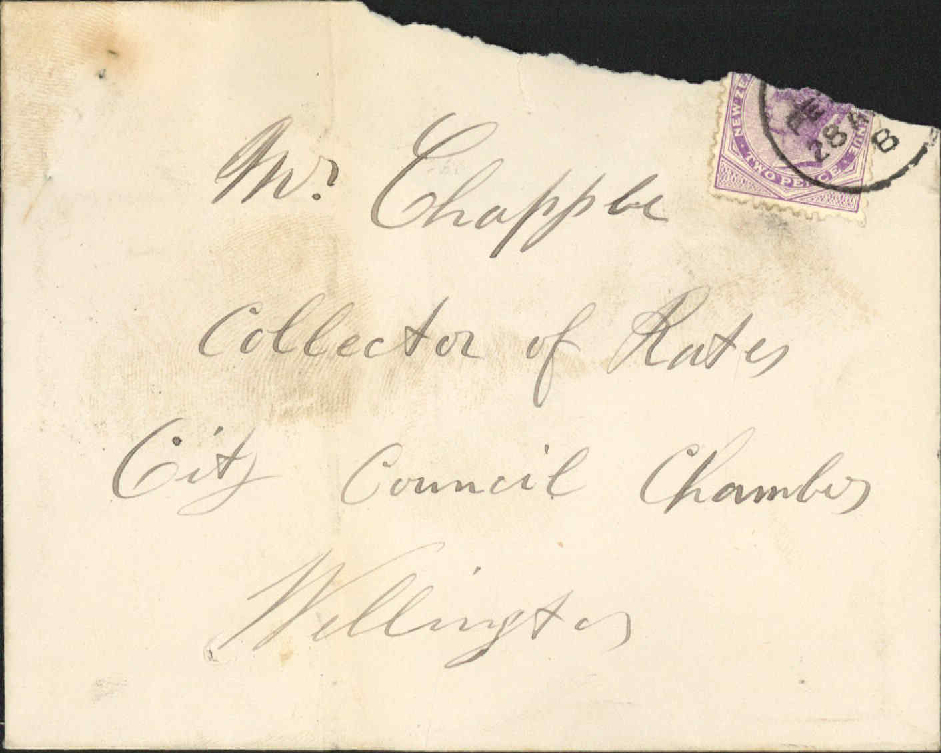 NEW ZE
TWO PENCE
28 A
8
Mr. Chapple
Collector of Rates
City Council Chambers
Wellington